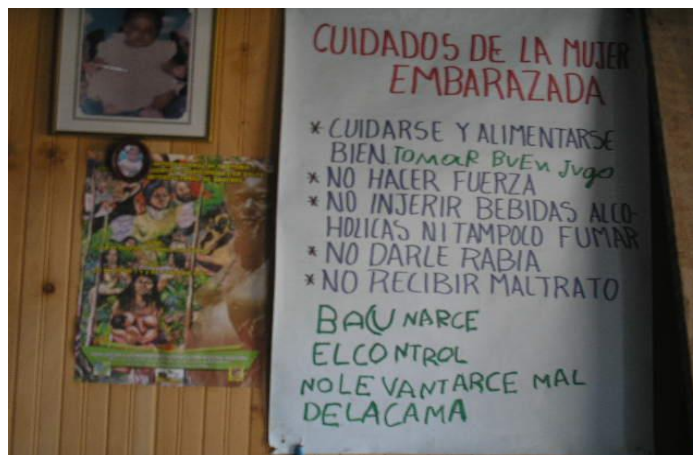 CUIDADOS DE LA MUJER
EMBARAZADA
* CUIDARSE Y ALIMENTARSE
BIEN. TOMAR BUEN JUGO
* NO HACER FUERZA
* NO INJERIR BEBIDAS ALCO-
HOLICAS NI TAMPOCO FUMAR
* NO DARLE RABIA
* NO RECIBIR MALTRATO
BACUNARCE
EL CONTROL
NO LEVANTARCE MAL
DE LA CAMA